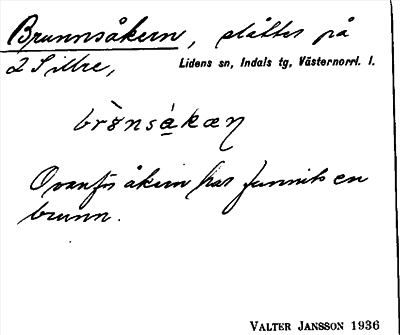 Brunnsåkern, slåtter på
2 Sillre, Lidens sn, Indals tg, Västernorrl. l.
brø̀nsákæɳ
Ovanför åkern har funnits en
brunn.
VALTER JANSSON 1936